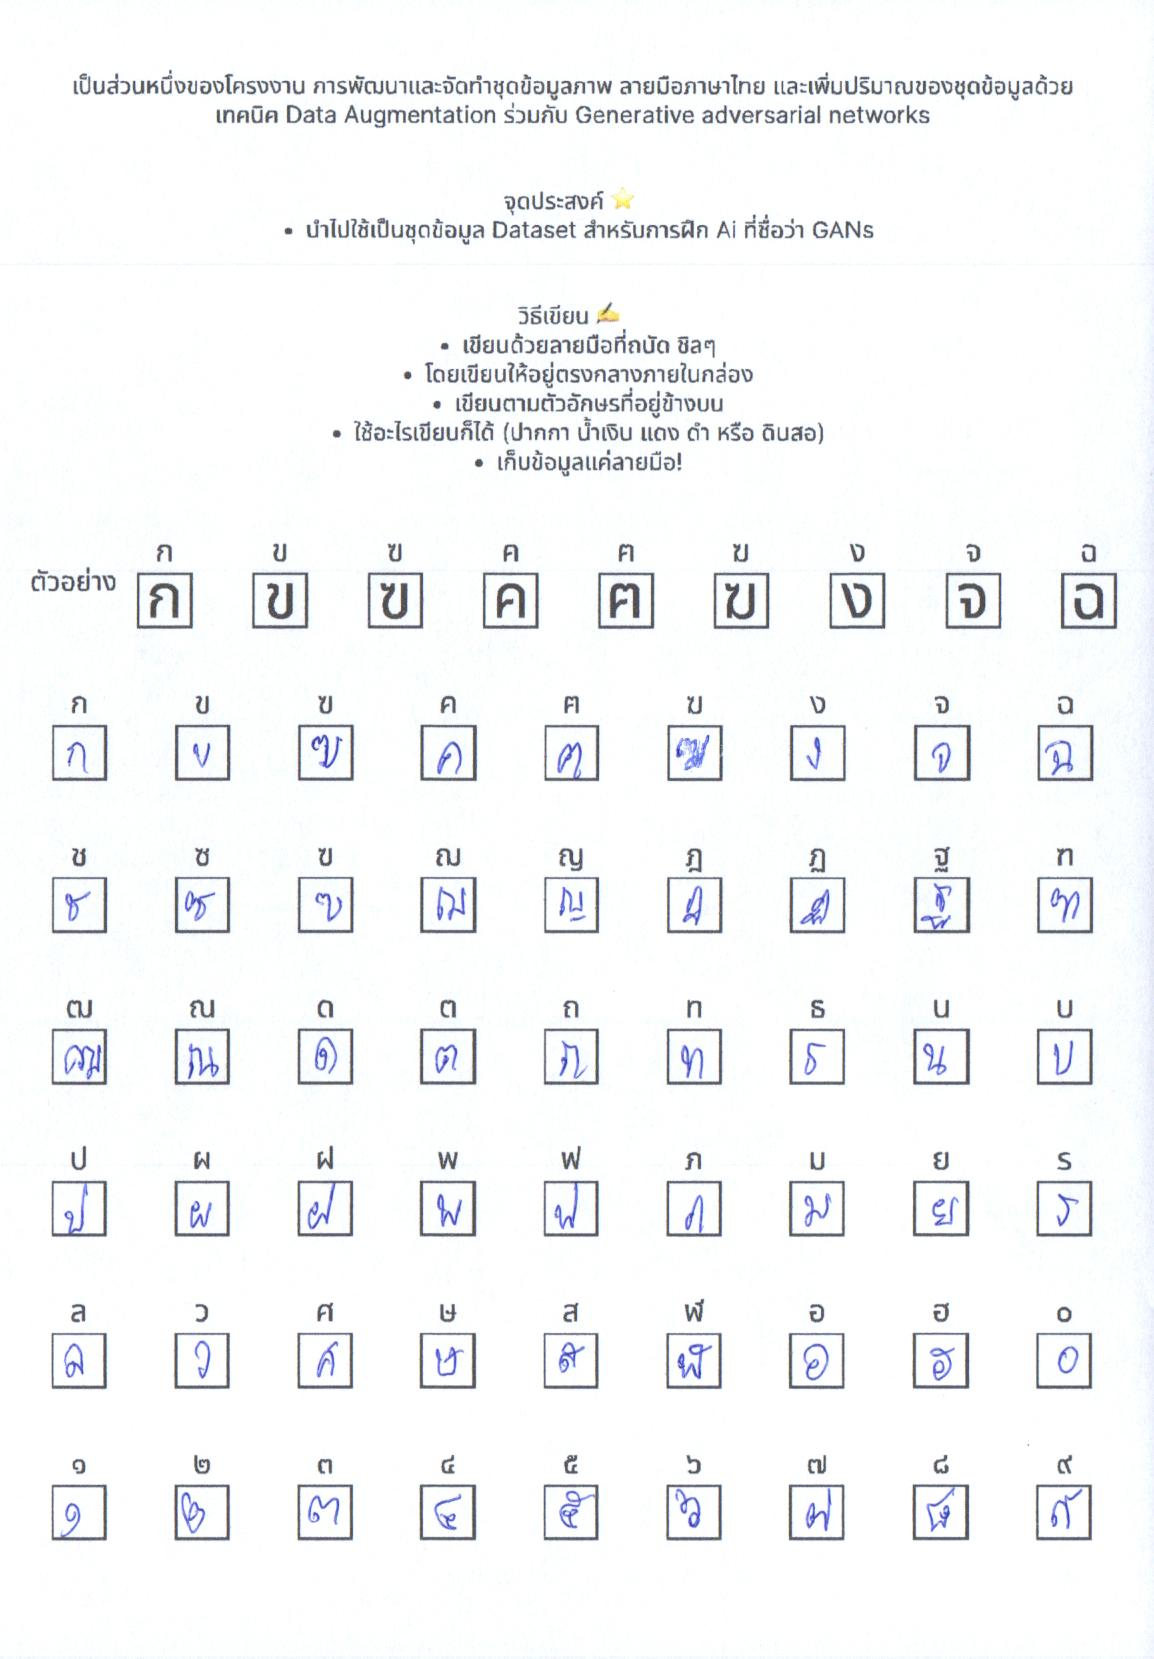 เป็นส่วนหนึ่งของโครงงาน การพัฒนาและจัดทำชุดข้อมูลภาพ ลายมือภาษาไทย และเพิ่มปริมาณของชุดข้อมูลด้วย
เทคนิค Data Augmentation ร่วมกับ Generative adversarial networks
จุดประสงค์ ⭐
• นำไปใช้เป็นชุดข้อมูล Dataset สำหรับการฝึก Ai ที่ชื่อว่า GANs
วิธีเขียน ✍️
• เขียนด้วยลายมือที่ถนัด ชิลๆ
• โดยเขียนให้อยู่ตรงกลางภายในกล่อง
• เขียนตามตัวอักษรที่อยู่ข้างบน
• ใช้อะไรเขียนก็ได้ (ปากกา น้ำเงิน แดง ดำ หรือ ดินสอ)
• เก็บข้อมูลแค่ลายมือ!
ก ข ฃ ค ฅ ฆ ง จ ฉ
ตัวอย่าง ก ข ฃ ค ฅ ฆ ง จ ฉ
ก ข ฃ ค ฅ ฆ ง จ ฉ
ก ข ฃ ค ฅ ง จ ฉ
ช ซ ฃ ฌ ญ ฎ ฏ ฐ ฑ
ช ซ ฃ ฌ ญ ฎ ฏ ฐ ฑ
ฒ ณ ด ต ถ ท ธ น บ
ฒ ณ ด ต ถ ท ธ น บ
ป ผ ฝ พ ฟ ภ ม ย ร
ป ผ ฝ พ ฟ ภ ม ย ร
ล ว ศ ษ ส ฬ อ ฮ ๐
ล ว ศ ษ ส ฬ อ ฮ ๐
๑ ๒ ๓ ๔ ๕ ๖ ๗ ๘ ๙
๑ ๒ ๓ ๔ ๕ ๖ ๗ ๘ ๙